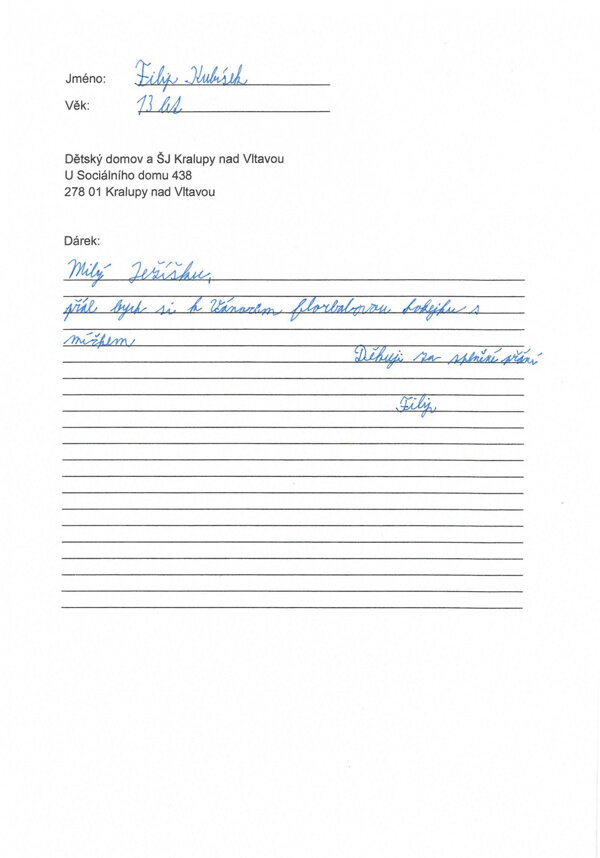 Jméno: Filip Kubíšek
Věk: 13 let
Dětský domov a ŠJ Kralupy nad Vltavou
U Sociálního domu 438
278 01 Kralupy nad Vltavou
Dárek:
Milý Ježíšku,
přál bych si k Vánocům florbalovou hokejku s
míčkem
Děkuji za splnění přání
Filip